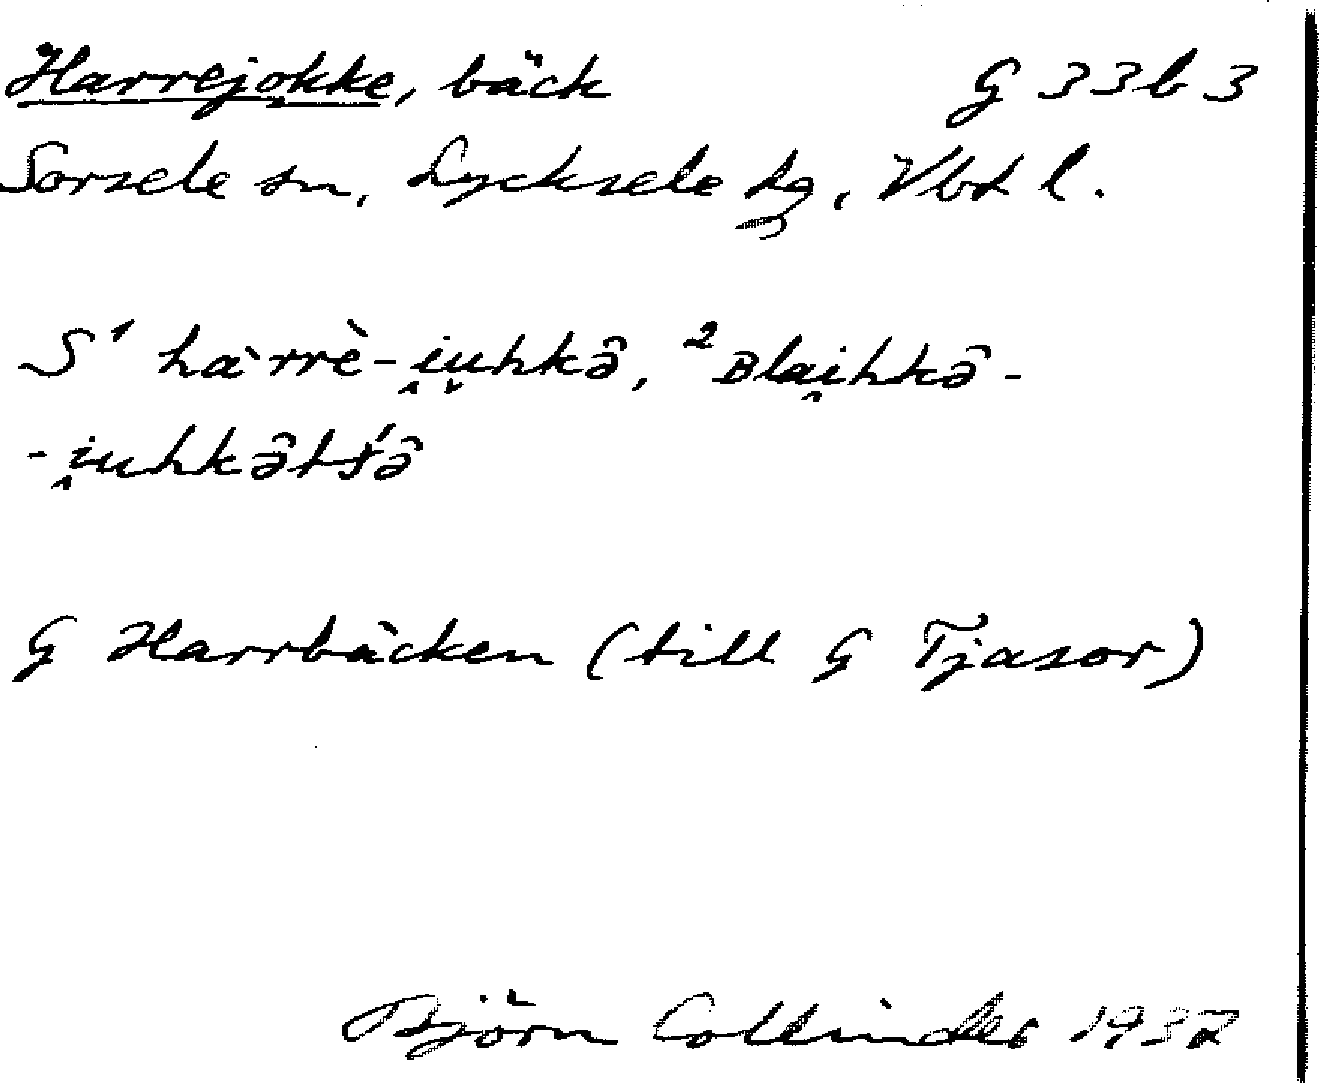 Harrejokke, bäck G 33b3
Sorsele sn, Lycksele lg, Vbt l.
S¹ hàrrè-i̭u̬hkə̂, ²Blai̭hkə̂-
-i̭uhkə̂tśə̂
G Harrbäcken (till G Tjasor)
Björn Collinder 1937